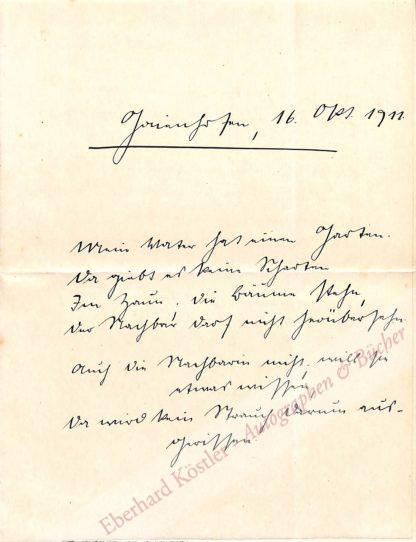 Gaienhofen, 16. Okt. 1911.
Mein Vater hat einen Garten.
Da giebt es keine Scharten
Im Zaun. Die Bäume stehn,
der Nachbar darf nicht herübersehn
Auch die Nachbarin nicht, will sie
etwas wissen
Da wird kein Strauch darum aus-
gerissen
Eberhard Köstler Autographen & Bücher